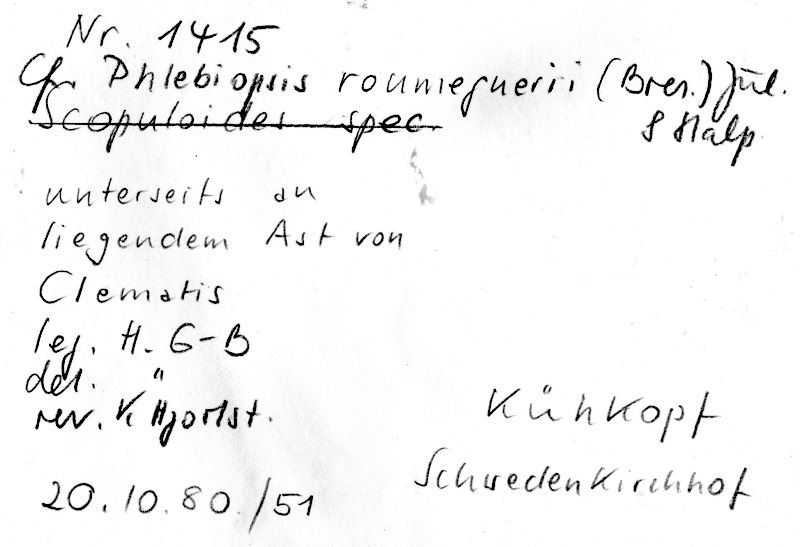 Nr. 1415
Cf. Phlebiopsis roumeguerii (Bres.) Jül.
& Stalp
Scopuloides spec.
unterseits an
liegendem Ast von
Clematis
leg. H. G-B
det. "
rev. K. Hjortst.
Kühkopf
Schwedenkirchhof
20.10.80./51